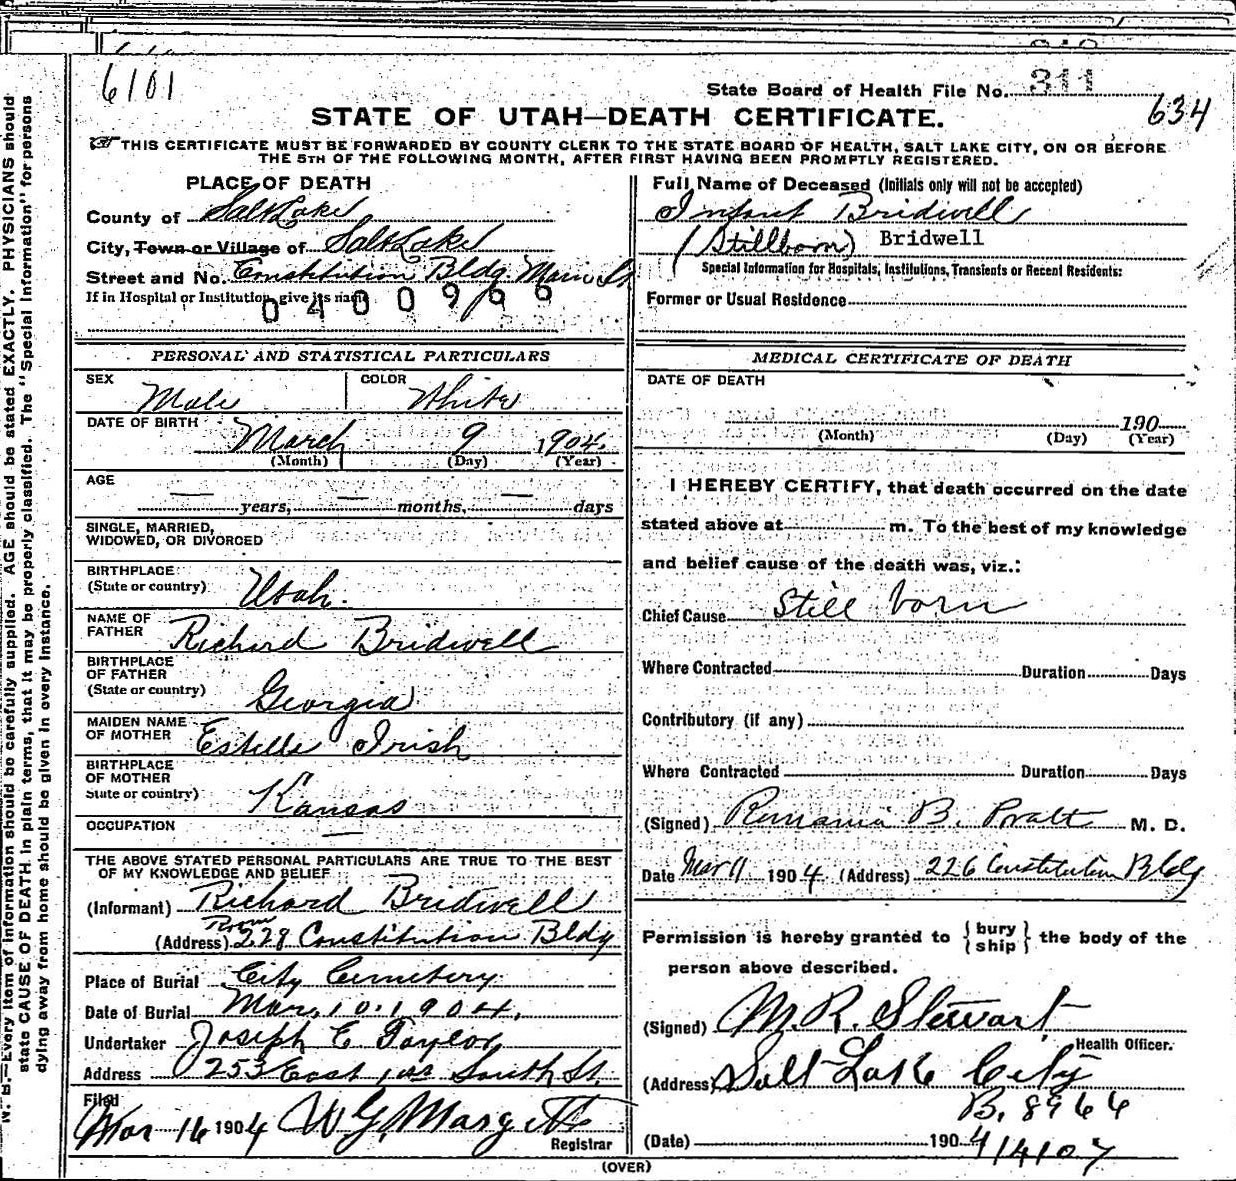 6101
State Board of Health File No. 311
634
STATE OF UTAH—DEATH CERTIFICATE.
THIS CERTIFICATE MUST BE FORWARDED BY COUNTY CLERK TO THE STATE BOARD OF HEALTH, SALT LAKE CITY, ON OR BEFORE
THE 5TH OF THE FOLLOWING MONTH, AFTER FIRST HAVING BEEN PROMPTLY REGISTERED.
N. B.—Every item of information should be carefully supplied. AGE should be stated EXACTLY. PHYSICIANS should
state CAUSE OF DEATH in plain terms, that it may be properly classified. The "Special Information" for persons
dying away from home should be given in every instance.
PLACE OF DEATH
County of Salt Lake
City, Town or Village of Salt Lake
Street and No. Constitution Bldg. Main St
If in Hospital or Institution, give its name
0400966
PERSONAL AND STATISTICAL PARTICULARS
SEX Male COLOR White
DATE OF BIRTH March 9 1904
(Month) (Day) (Year)
AGE
— years, — months, — days
SINGLE, MARRIED,
WIDOWED, OR DIVORCED
BIRTHPLACE
(State or country) Utah.
NAME OF
FATHER Richard Bridwell
BIRTHPLACE
OF FATHER
(State or country) Georgia
MAIDEN NAME
OF MOTHER Estelle Irish
BIRTHPLACE
OF MOTHER
State or country) Kansas
OCCUPATION —
THE ABOVE STATED PERSONAL PARTICULARS ARE TRUE TO THE BEST
OF MY KNOWLEDGE AND BELIEF
(Informant) Richard Bridwell
Room
(Address) 228 Constitution Bldg
Place of Burial City Cemetery
Date of Burial Mar. 10. 1904.
Undertaker Joseph E Taylor
Address 253 East 1st South St.
Filed
Mar 16 1904 W G Margetts
Registrar
Full Name of Deceased (Initials only will not be accepted)
Infant Bridwell
(Stillborn) Bridwell
Special Information for Hospitals, Institutions, Transients or Recent Residents:
Former or Usual Residence
MEDICAL CERTIFICATE OF DEATH
DATE OF DEATH
190
(Month) (Day) (Year)
I HEREBY CERTIFY, that death occurred on the date
stated above at m. To the best of my knowledge
and belief cause of the death was, viz.:
Chief Cause Still born
Where Contracted Duration Days
Contributory (if any)
Where Contracted Duration Days
(Signed) Romania B. Pratt M. D.
Date Mar 11 1904 (Address) 226 Constitution Bldg
Permission is hereby granted to {bury
ship} the body of the
person above described.
(Signed) M. R. Stewart
Health Officer.
(Address) Salt Lake City
B. 8966
(Date) 1904
(OVER)